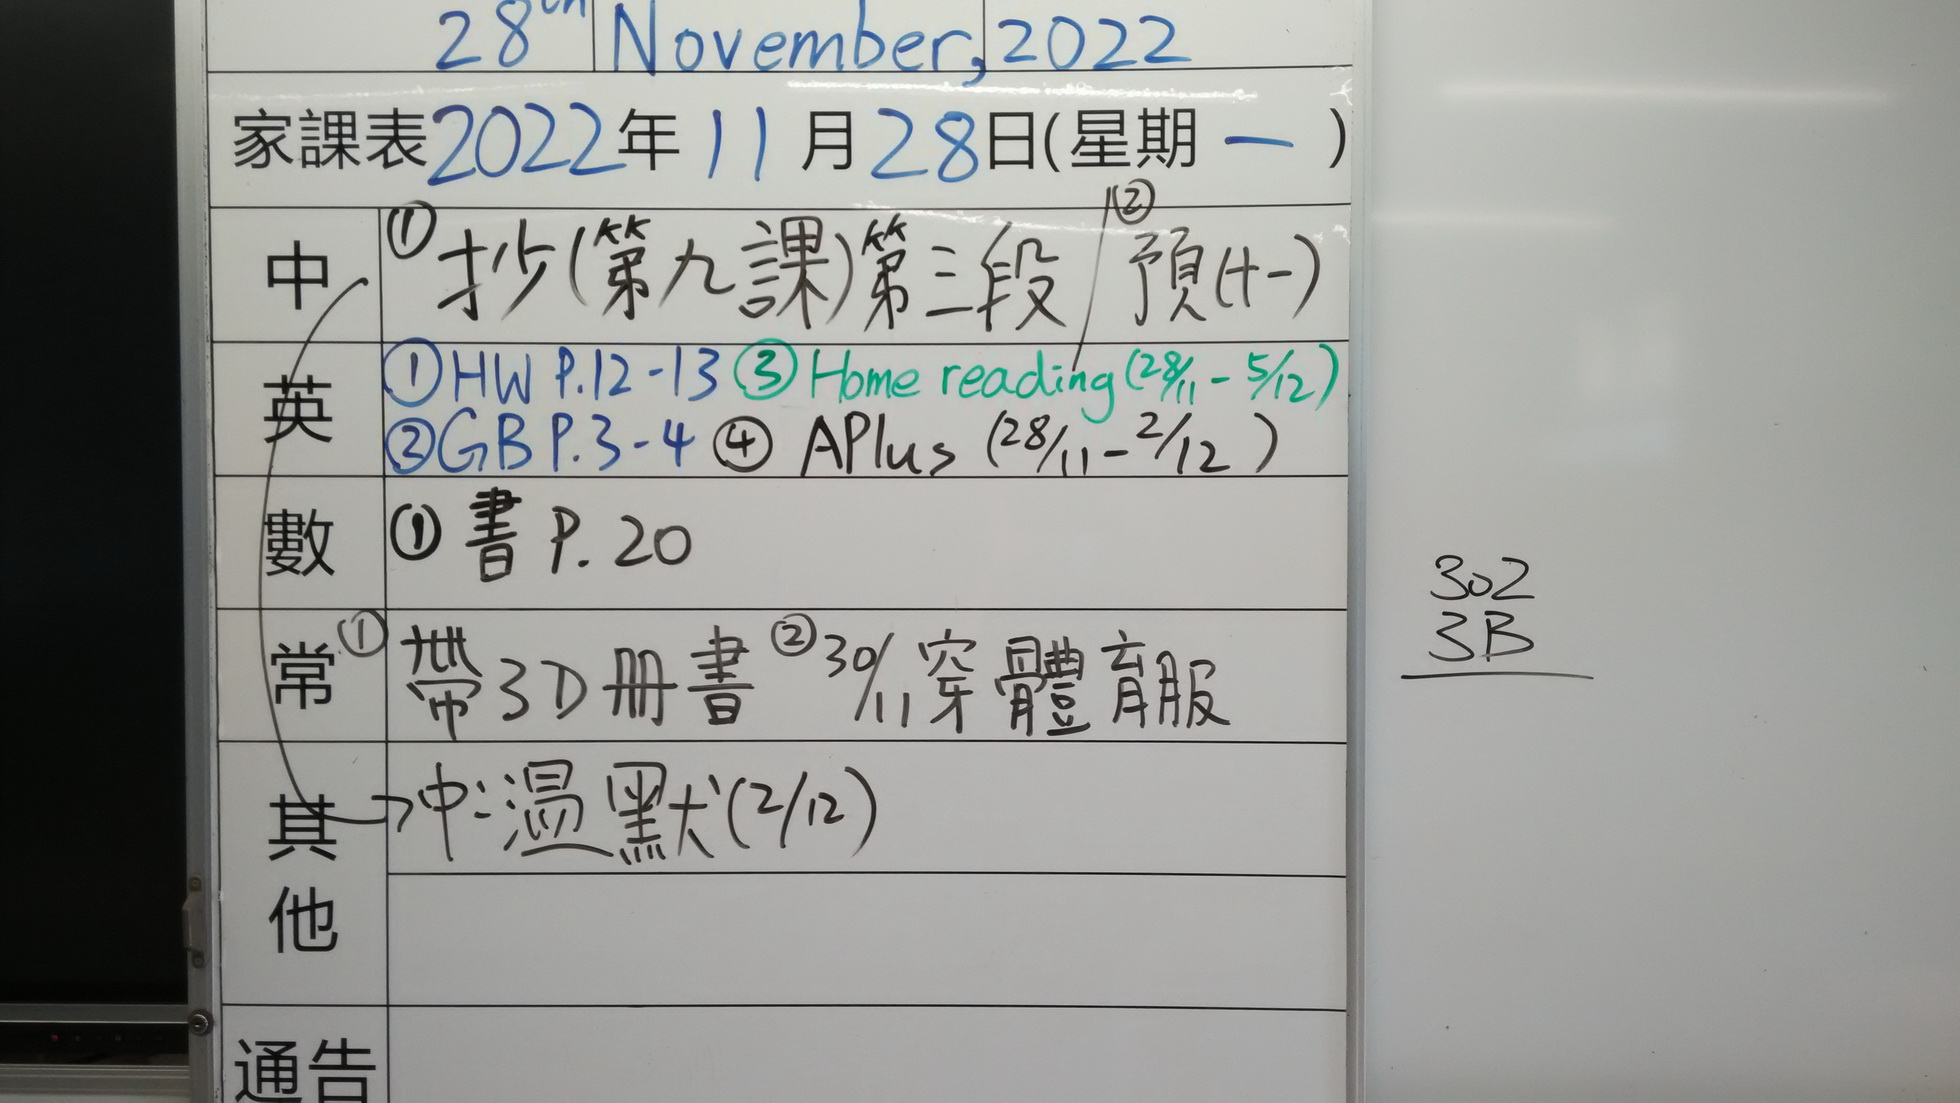 28th November, 2022
家課表2022年11月28日(星期一)
中 ①抄(第九課)第三段/②預(十一)
英 ①HW P.12-13 ③Home reading(28/11-5/12)
②GB P.3-4 ④APlus (28/11-2/12)
數 ①書P.20
常 ①帶3D冊書 ②30/11穿體育服
其他 中:溫默(2/12)
通告
302
3B